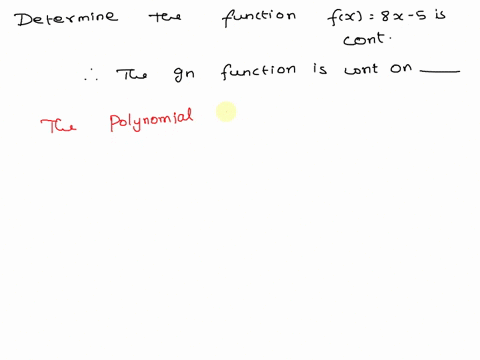 Determine the function f(x) = 8x-5 is
cont.
∴ The gn function is cont on ____
The Polynomial